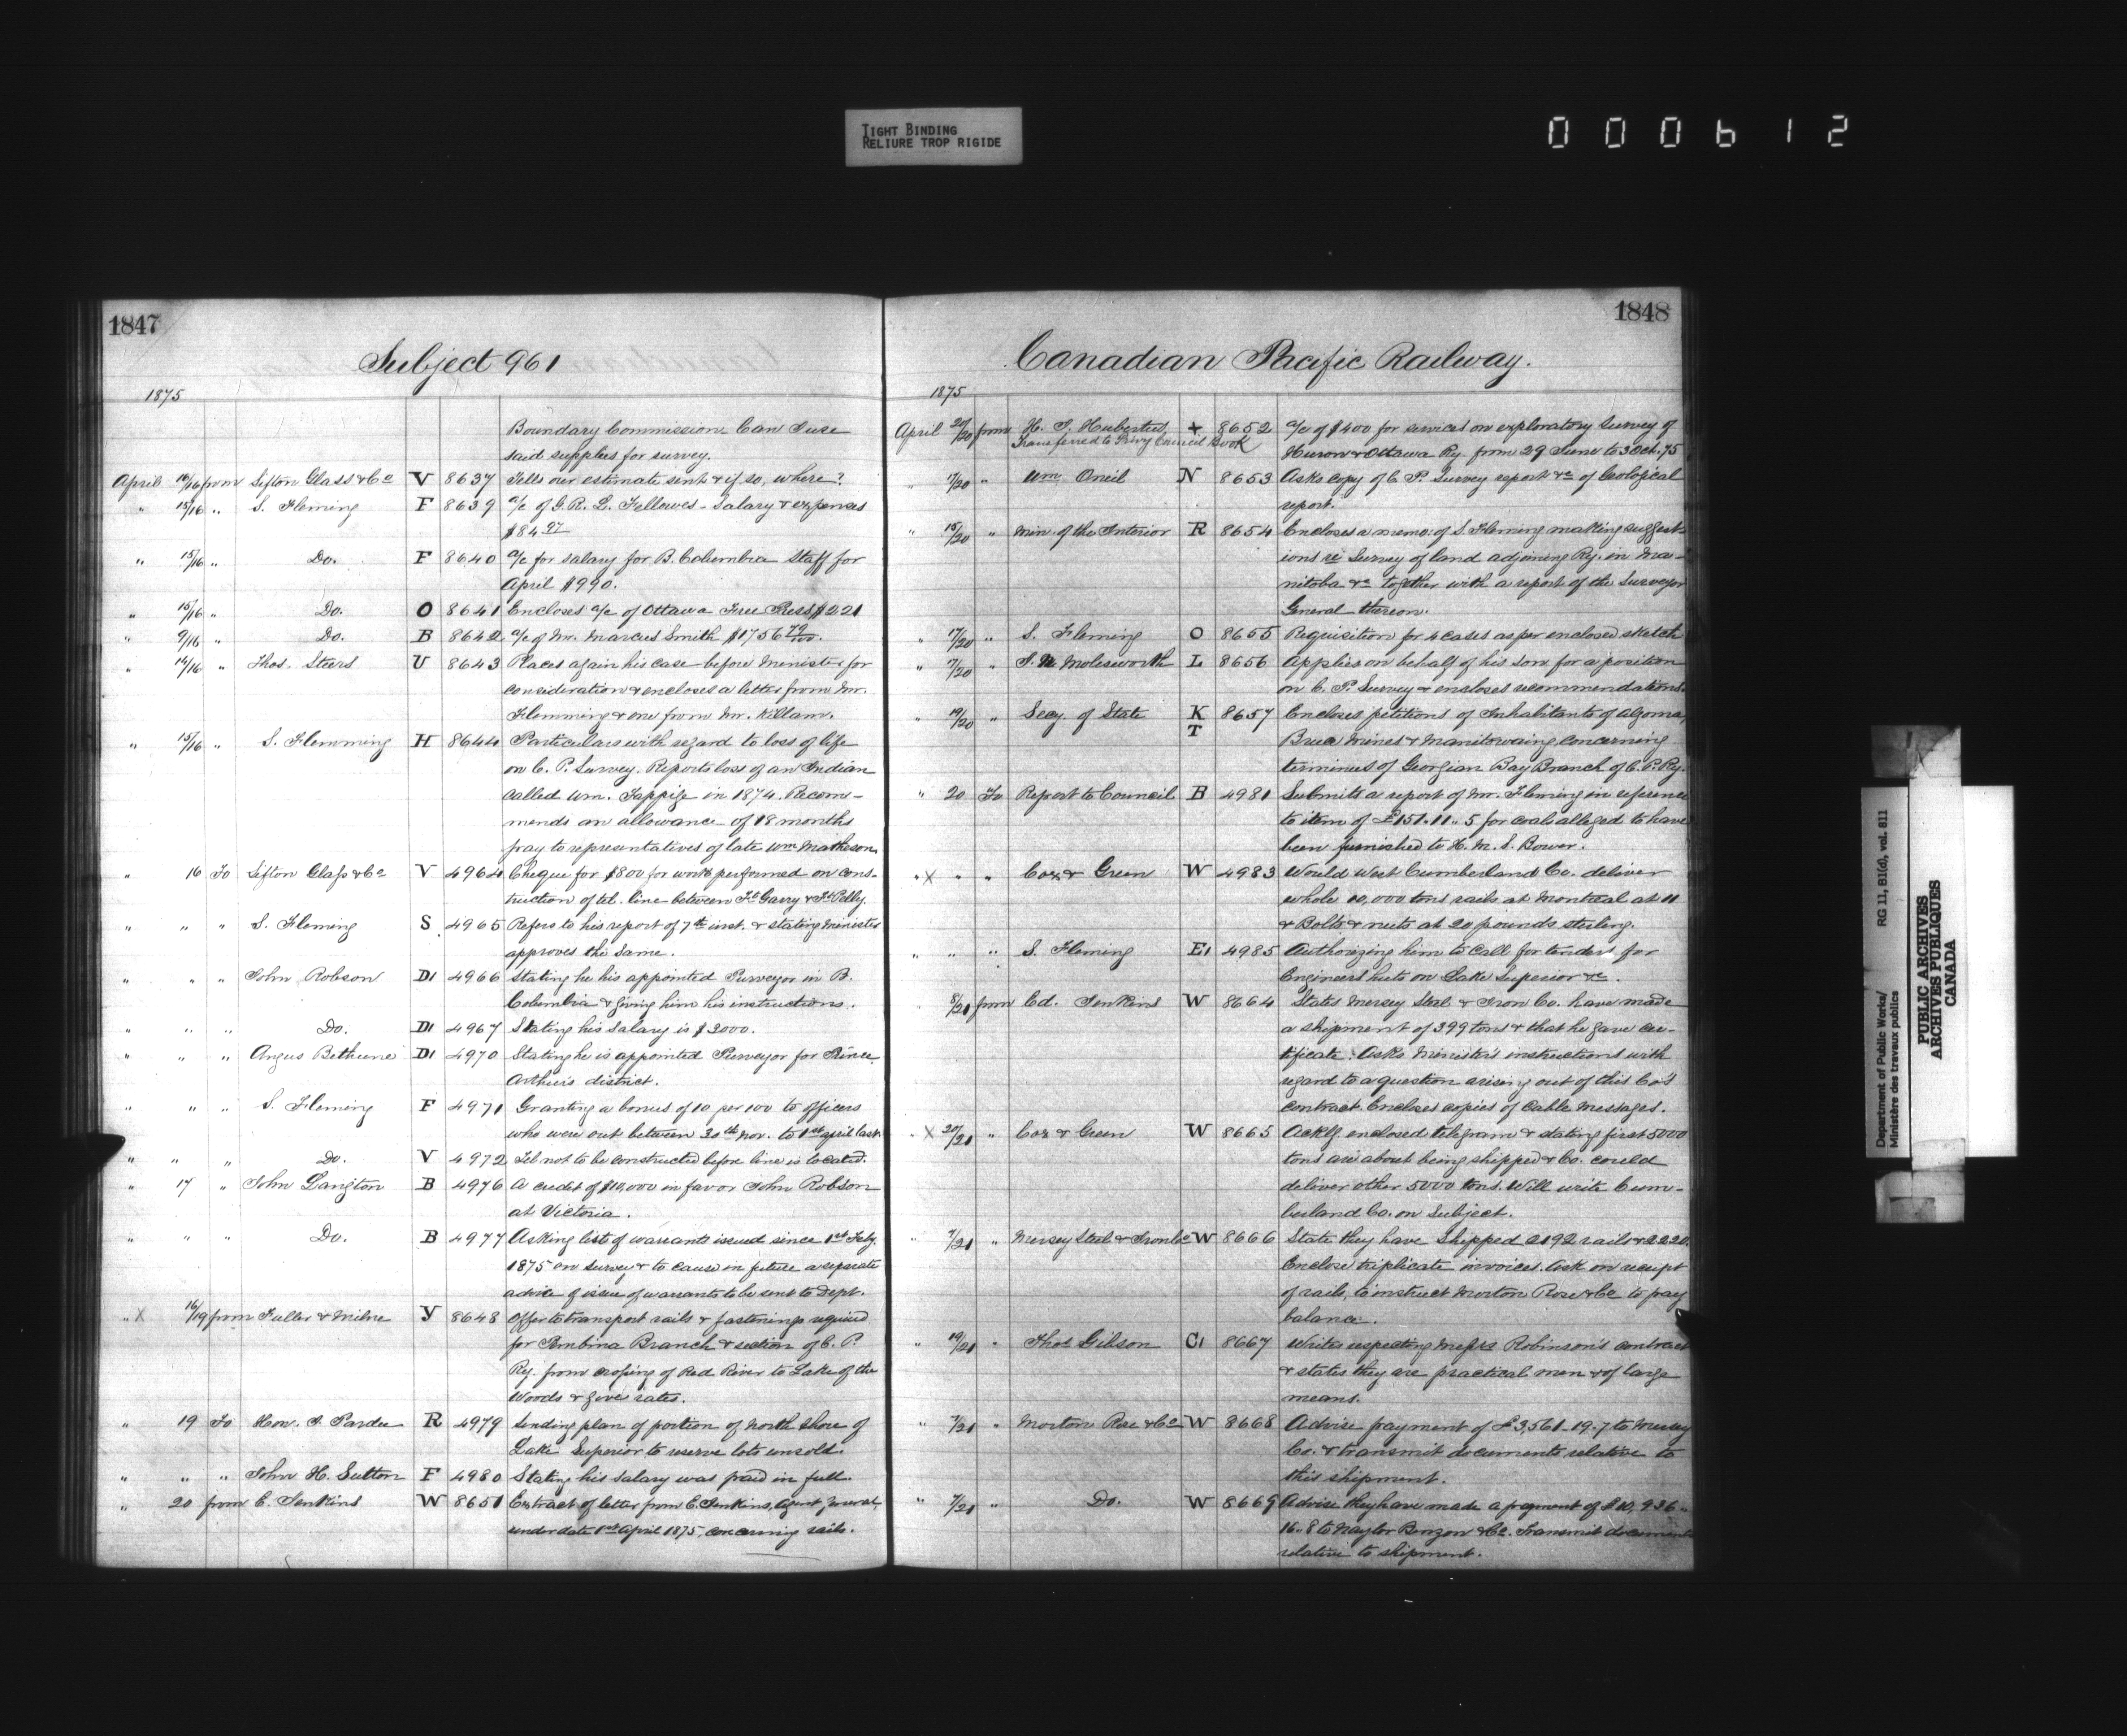 TIGHT BINDING
RELIURE TROP RIGIDE
000612
1847
Subject 961
1875
Boundary Commission Can I use
said supplies for survey.
April 14/16 from Sifton Glass & Co V 8637 Tells our estimate sent & if so, where?
" 15/16 " S. Fleming F 8639 a/c of G. R. L. Fellowes - Salary & expenses
$84 97
" 15/16 " Do. F 8640 a/c for salary for B. Columbia Staff for
April $990.
" 15/16 " Do. O 8641 Encloses a/c of Ottawa Free Press $221
" 9/16 " Do. B 8642 a/c of Mr. Marcus Smith $1756 79/100.
" 14/16 " Thos. Steers U 8643 Places again his case before Minister for
consideration & encloses a letter from Mr.
Flemming & one from Mr. Killam.
" 15/16 " S. Flemming H 8644 Particulars with regard to loss of life
on C. P. Survey. Reports loss of an Indian
called Wm. in 1874. Recom-
mends an allowance of 18 months
pay to representatives of late Wm Matheson.
" 16 To Sifton Glass & Co V 4964 Cheque for $800 for work performed on cons-
truction of tel. line between Ft Garry & Ft Pelly.
" " " S. Fleming S 4965 Refers to his report of 7th inst. & stating Minister
approves the same.
" " " John Robson D1 4966 Stating he his appointed Purveyor in B.
Columbia & giving him his instructions.
" " " Do. D1 4967 Stating his salary is $3000.
" " " Angus Bethune D1 4970 Stating he is appointed Purveyor for Prince
Arthur's district.
" " " S. Fleming F 4971 Granting a bonus of 10 per 100 to officers
who were out between 30th Nov. to 1st april last.
" " " Do. V 4972 Tel not to be constructed before line is located.
" 17 " John Langton B 4976 A credit of $10,000 in favor John Robson
at Victoria.
" " " Do. B 4977 Asking list of warrants issued since 1st Feby.
1875 on survey & to cause in future a separate
advice of issue of warrants to be sent to Dept.
" X 16/19 from Fuller & Milne Y 8648 Offer to transport rails & fastenings required
for Pembina Branch & section of C. P.
Ry. from crossing of Red River to Lake of the
Woods & give rates.
" 19 To Hon. T. Pardee R 4979 Sending plan of portion of North Shore of
Lake Superior to reserve lots unsold.
" " " John H. Sutton F 4980 Stating his salary was paid in full.
" 20 from E. Jenkins W 8651 Extract of letter from E. Jenkins, Agent General,
under date 1st April 1875, concerning rails.
1848
Canadian Pacific Railway.
1875
April 20/20 from H. S. Hubertus + 8652 a/c of $400 for services on exploratory Survey of
Transferred to Privy Council Book
Huron & Ottawa Ry. from 29 June to 3 Oct. 75
" 17/20 " Wm. Oneil N 8653 Asks copy of C. P. Survey report &c of Geological
report.
" 15/20 " Min. of the Interior R 8654 Encloses a memo: of S. Fleming making suggest-
ions re Survey of land adjoining Ry. in Ma-
nitoba &c together with a report of the Surveyor
General thereon.
" 17/20 " S. Fleming O 8655 Requisition for 4 cases as per enclosed sketch
" 7/20 " Molesworth L 8656 Applies on behalf of his son for a position
on C. P. Survey & encloses recommendations.
" 19/20 " Secy. of State K 8657 Encloses petitions of Inhabitants of Algoma,
T
Bruce Mines & Manitowaing concerning
terminus of Georgian Bay Branch of C. P. Ry.
" 20 To Report to Council B 4981 Submits a report of Mr. Fleming in reference
to item of £151.11.5 for coals alleged to have
been furnished to H. M. S. Bower.
" X " " Cox & Green W 4983 Would West Cumberland Co. deliver
whole 10,000 tons rails at Montreal at 11
& Bolts & nuts at 20 pounds sterling.
" " " S. Fleming E1 4985 Authorizing him to call for tenders for
Engineers huts on Lake Superior &c.
8/21 from Ed. Jenkins W 8664 States Mersey Steel & Iron Co. have made
a shipment of 399 tons & that he gave cer-
tificate. Asks Minister's instructions with
regard to a question arising out of this Co's
contract. Encloses copies of Cable Messages.
" X 20/21 " Cox & Green W 8665 Ackg. enclosed telegram & stating first 5000
tons are about being shipped & Co. could
deliver other 5000 tons. Will write Cum-
berland Co. on Subject.
" 7/21 " Mersey Steel & Iron Co W 8666 State they have Shipped 2192 rails & 2220.
Enclose triplicate invoices. Ask on receipt
of rails, to instruct Morton Rose & Co to pay
balance.
" 19/21 " Thos Gibson C1 8667 Writes respecting Messrs Robinson's contract
& states they are practical men & of large
means.
" 7/21 " Morton Rose & Co W 8668 Advise payment of £3,561-19-7 to Mersey
Co. & transmit documents relative to
this shipment.
" 7/21 " Do. W 8669 Advise they have made a payment of £10,936..
16..8 to Naylor Benzon & Co. Transmit documents
relative to shipment.
Department of Public Works/ RG 11, B1(d), vol. 811
Ministère des travaux publics
PUBLIC ARCHIVES
ARCHIVES PUBLIQUES
CANADA